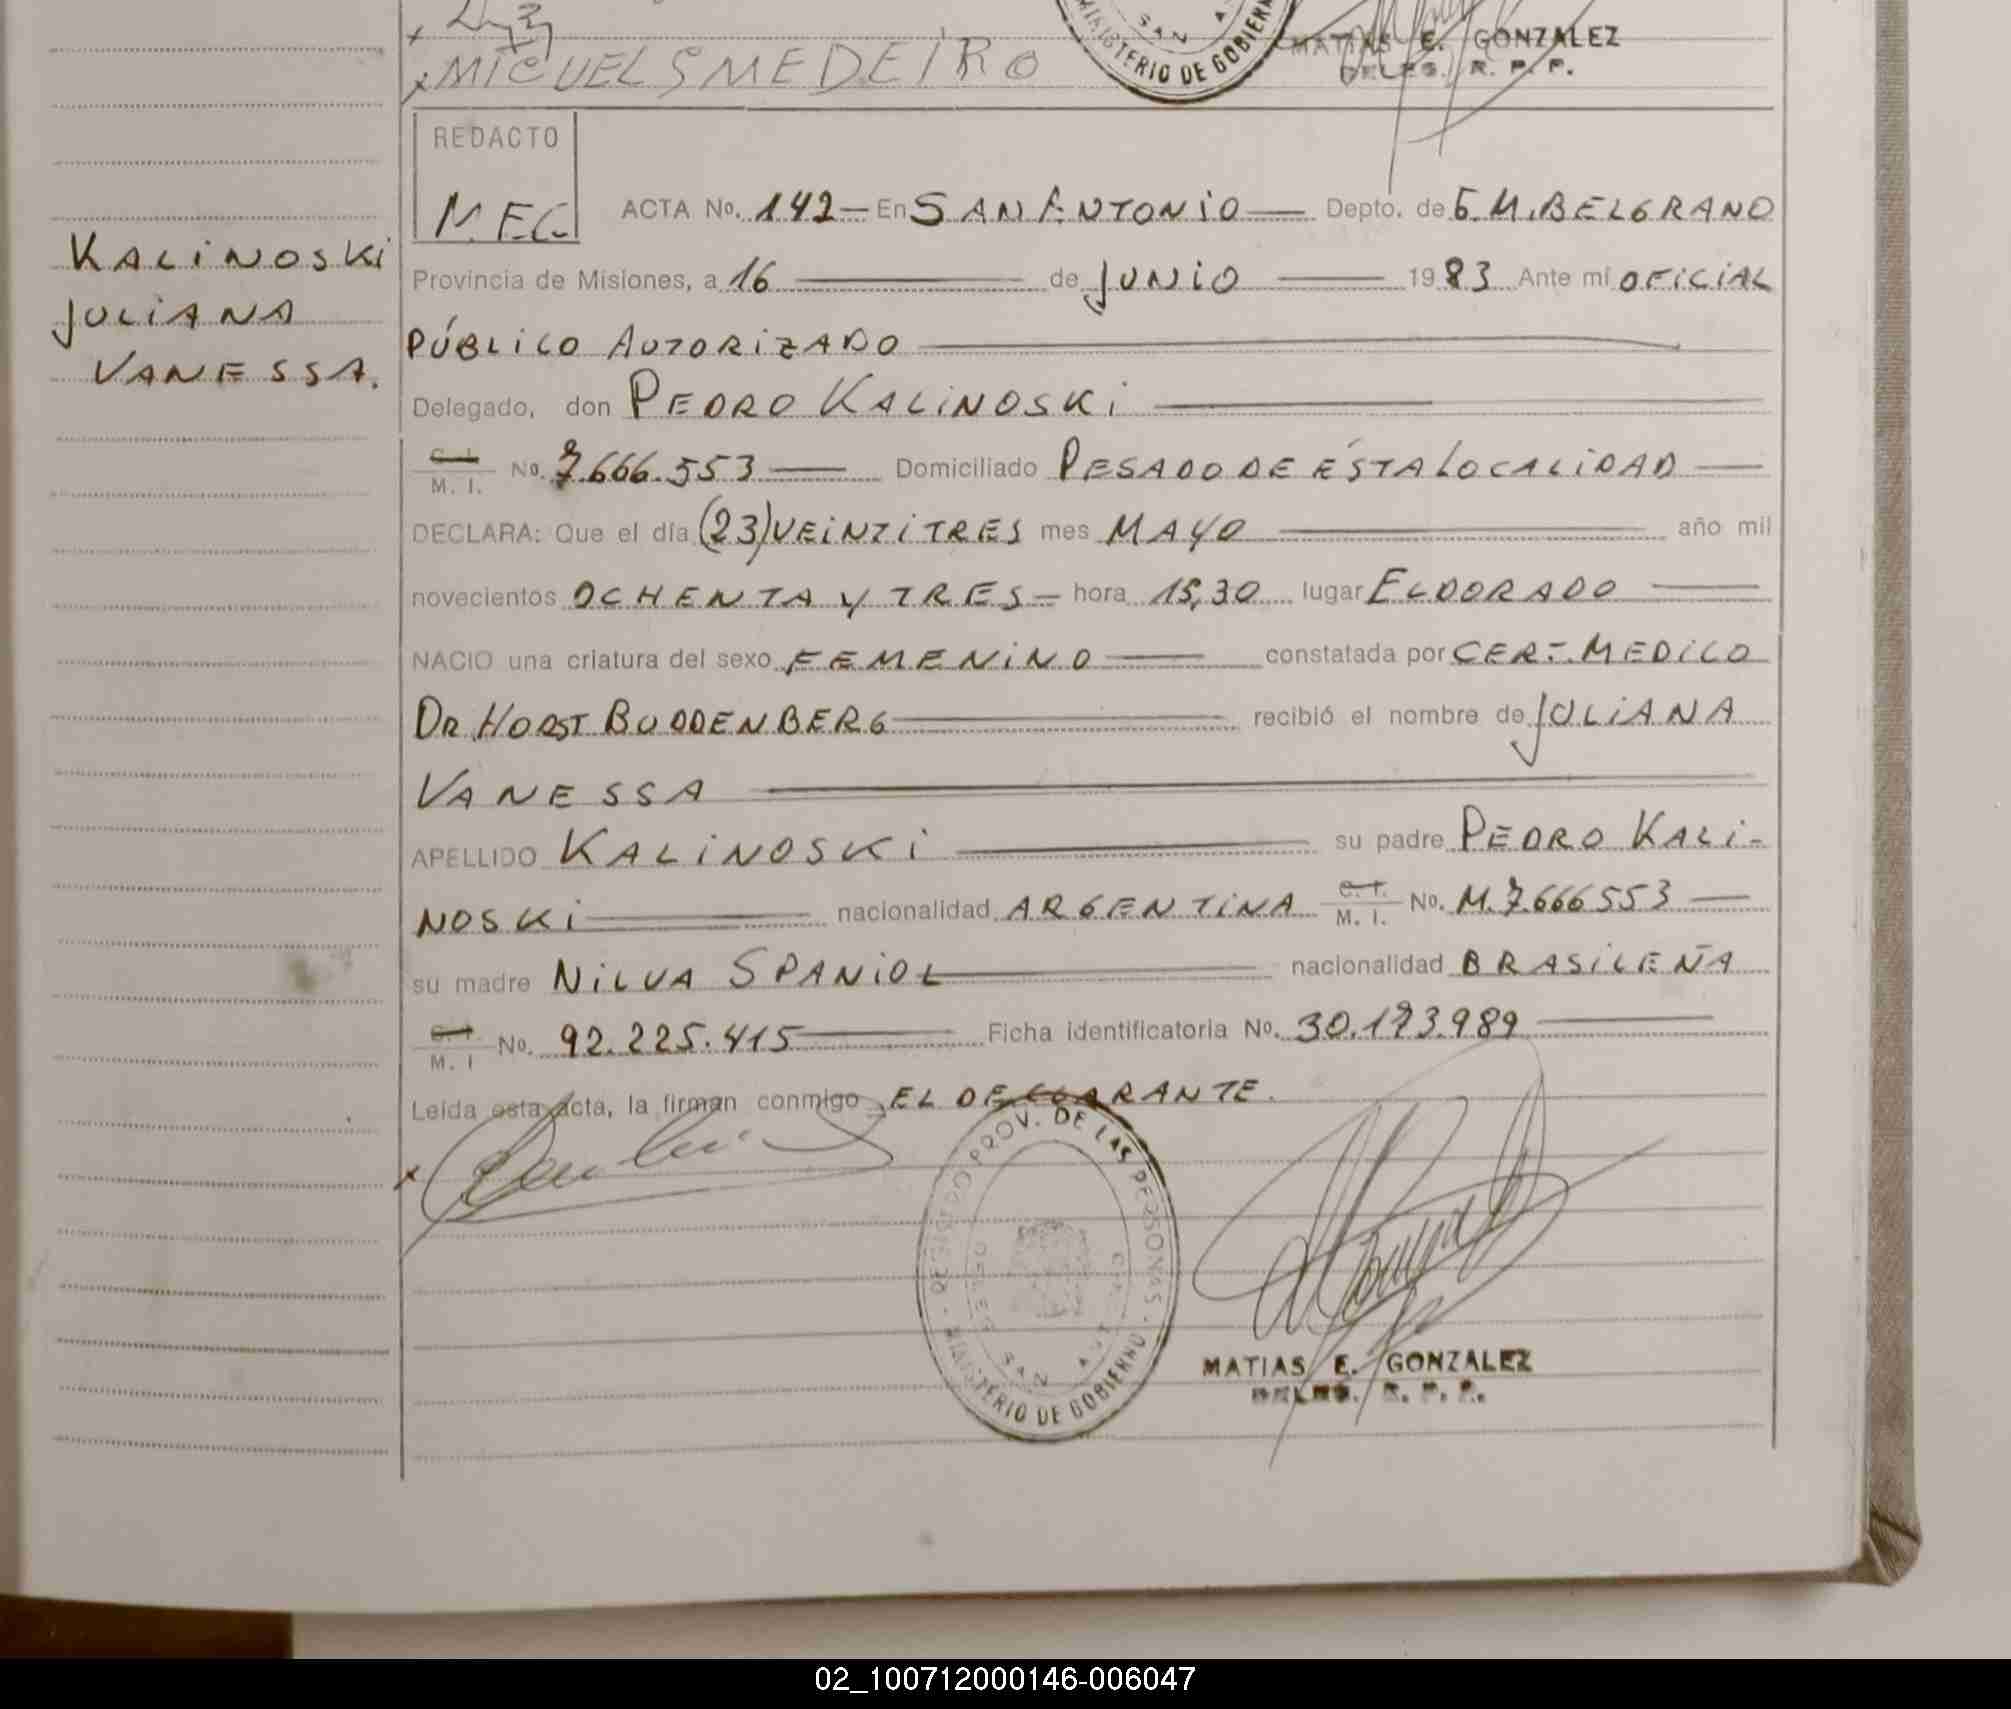 MINISTERIO DE GOBIERN
MATIAS E. GONZALEZ
DELEG. R. P. P.
MIGUEL S MEDEIRO
REDACTO
M.E.G.
ACTA No. 142 — En SAN ANTONIO — Depto. de G.M.BELGRANO
KALINOSKI
JULIANA
VANESSA.
Provincia de Misiones, a 16 — de JUNIO — 1983 Ante mí OFICIAL
PÚBLICO AUTORIZADO —
Delegado, don PEDRO KALINOSKI —
C. I. M. I. No. 7.666.553 — Domiciliado PESADO DE ÉSTA LOCALIDAD —
DECLARA: Que el día (23) VEINTITRES mes MAYO — año mil
novecientos OCHENTA Y TRES — hora 15,30 lugar ELDORADO —
NACIO una criatura del sexo FEMENINO — constatada por CERT. MEDICO
DR. HORST BUDDENBERG — recibió el nombre de JULIANA
VANESSA —
APELLIDO KALINOSKI — su padre PEDRO KALI-
NOSKI — nacionalidad ARGENTINA C. I. M. I. No. M.7.666553 —
su madre NILVA SPANIOL — nacionalidad BRASILEÑA
C. I. M. I No. 92.225.415 — Ficha identificatoria No. 30.173.989 —
Leída esta acta, la firman conmigo EL DECLARANTE.
REGISTRO PROV. DE LAS PERSONAS · MINISTERIO DE GOBIERNO ·
MATIAS E. GONZALEZ
DELEG. R. P. P.
02_100712000146-006047